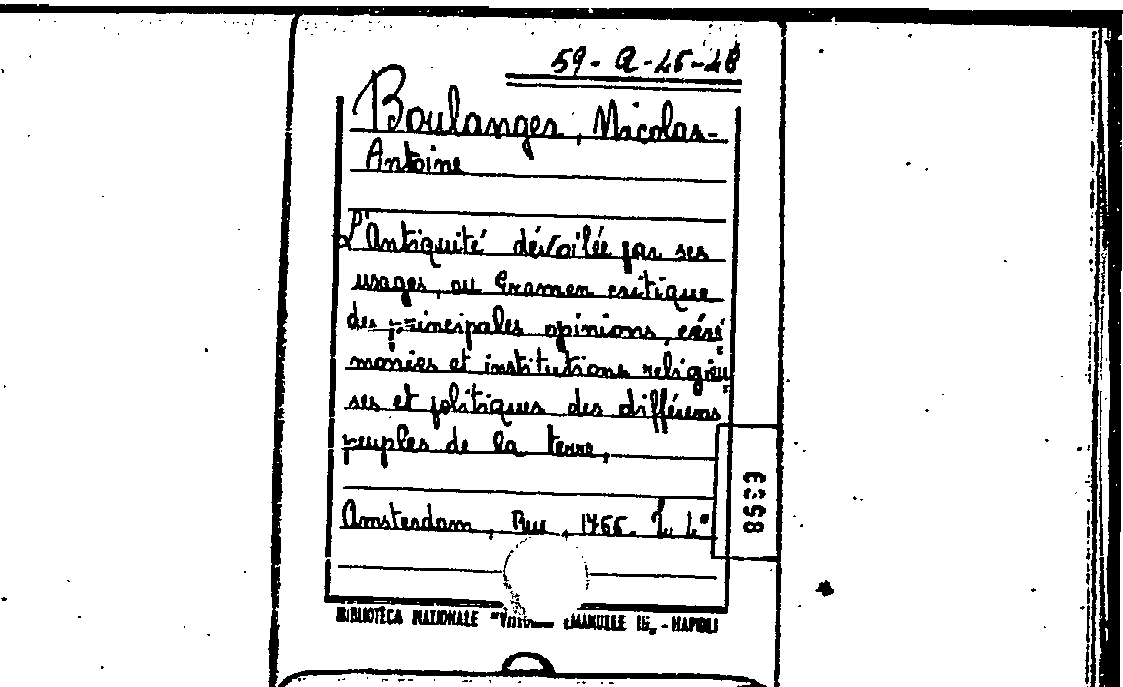 59-A-46-48
Boulanger, Nicolas-
Antoine
L'Antiquité dévoilée par ses
usages, ou Examen critique
des principales opinions, céré
monies et institutions religieu
ses et politiques des différens
peuples de la terre,
Amsterdam, Rey, 1766.
BIBLIOTECA NAZIONALE "Vittorio EMANUELE III" - NAPOLI